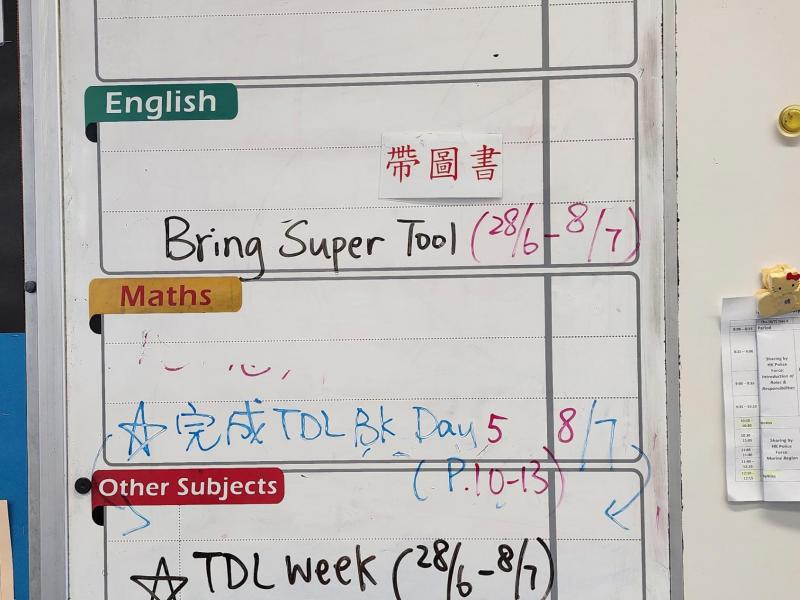 English
帶圖書
Bring Super Tool (28/6-8/7)
Maths
☆完成TDL Bk Day 5 8/7
(P.10-13)
Other Subjects
☆TDL week (28/6-8/7)
Period
Sharing by
HK Police
Force:
Introduction of
Roles &
Responsibilities
Sharing by
HK Police
Force:
Marine Region